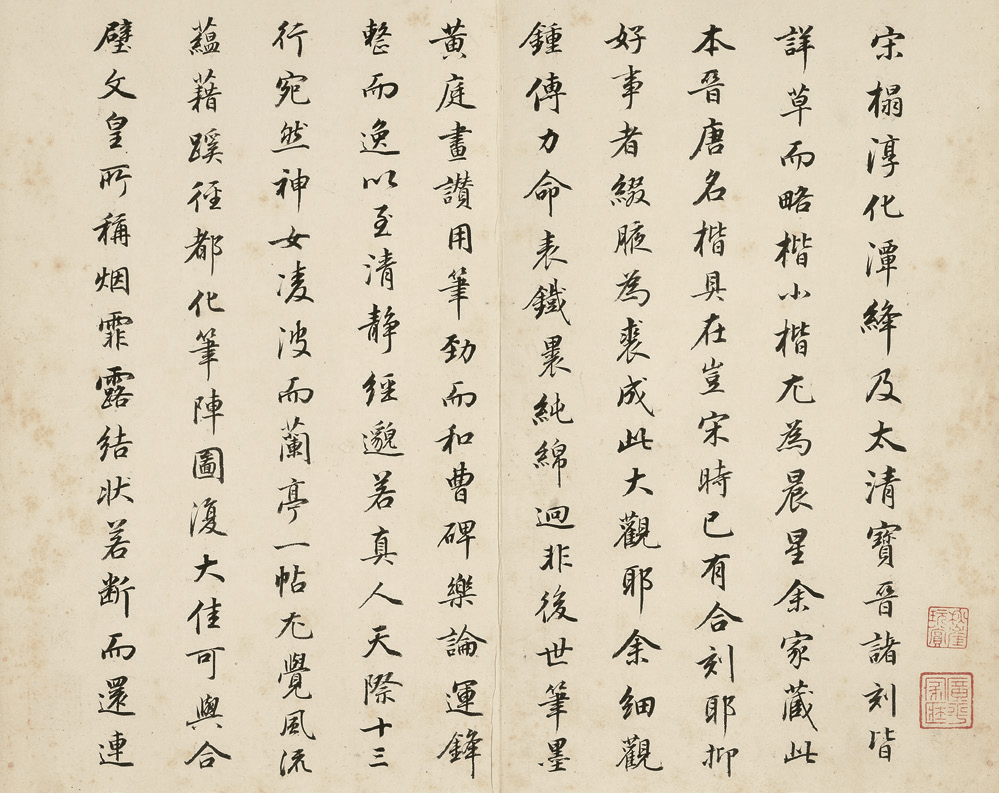 宋榻淳化潭絳及太清寶晉諸刻皆
詳草而略楷小楷尤為晨星余家藏此
本晉唐名楷具在豈宋時已有合刻耶抑
好事者綴腋為裘成此大觀耶余細觀
鍾傳力命表鐵裹純綿迥非後世筆墨
黃庭畫讚用筆勁而和曹碑樂論運鋒
整而逸以至清靜經邈若真人天際十三
行宛然神女凌波而蘭亭一帖尤覺風流
蘊藉蹊徑都化筆陣圖復大佳可與合
璧文皇所稱烟霏露結狀若断而還連